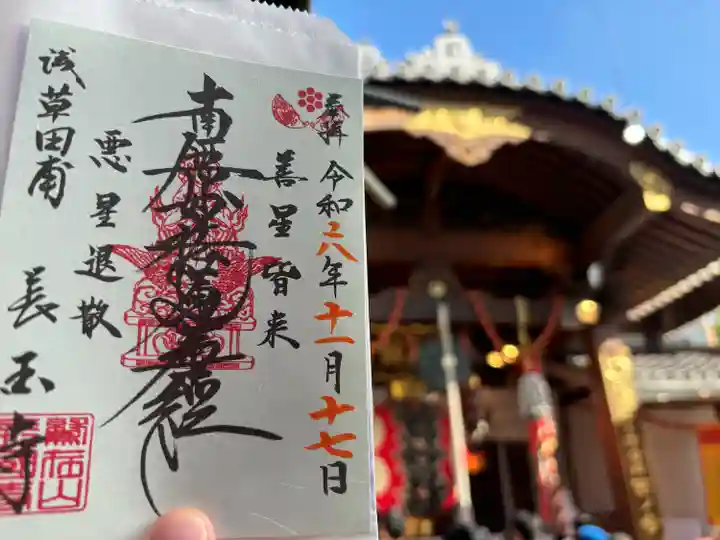 奉拝 令和六年十一月十七日
善星皆来
南無妙法蓮華経
悪星退散
浅草田甫
長国寺
鷲在山